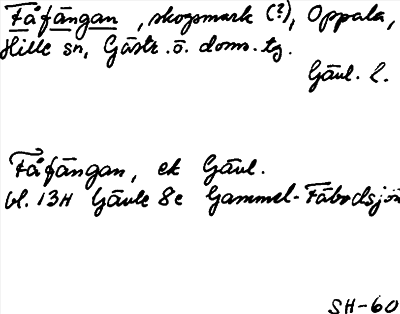 Fåfängan, skogsmark (?), Oppala,
Hille sn, Gästr. ö. doms. tg.
Gävl. l.
Fåfängan, ek Gävl.
bl. 13H Gävle 8e Gammel-Fäbodsjön
SH-60